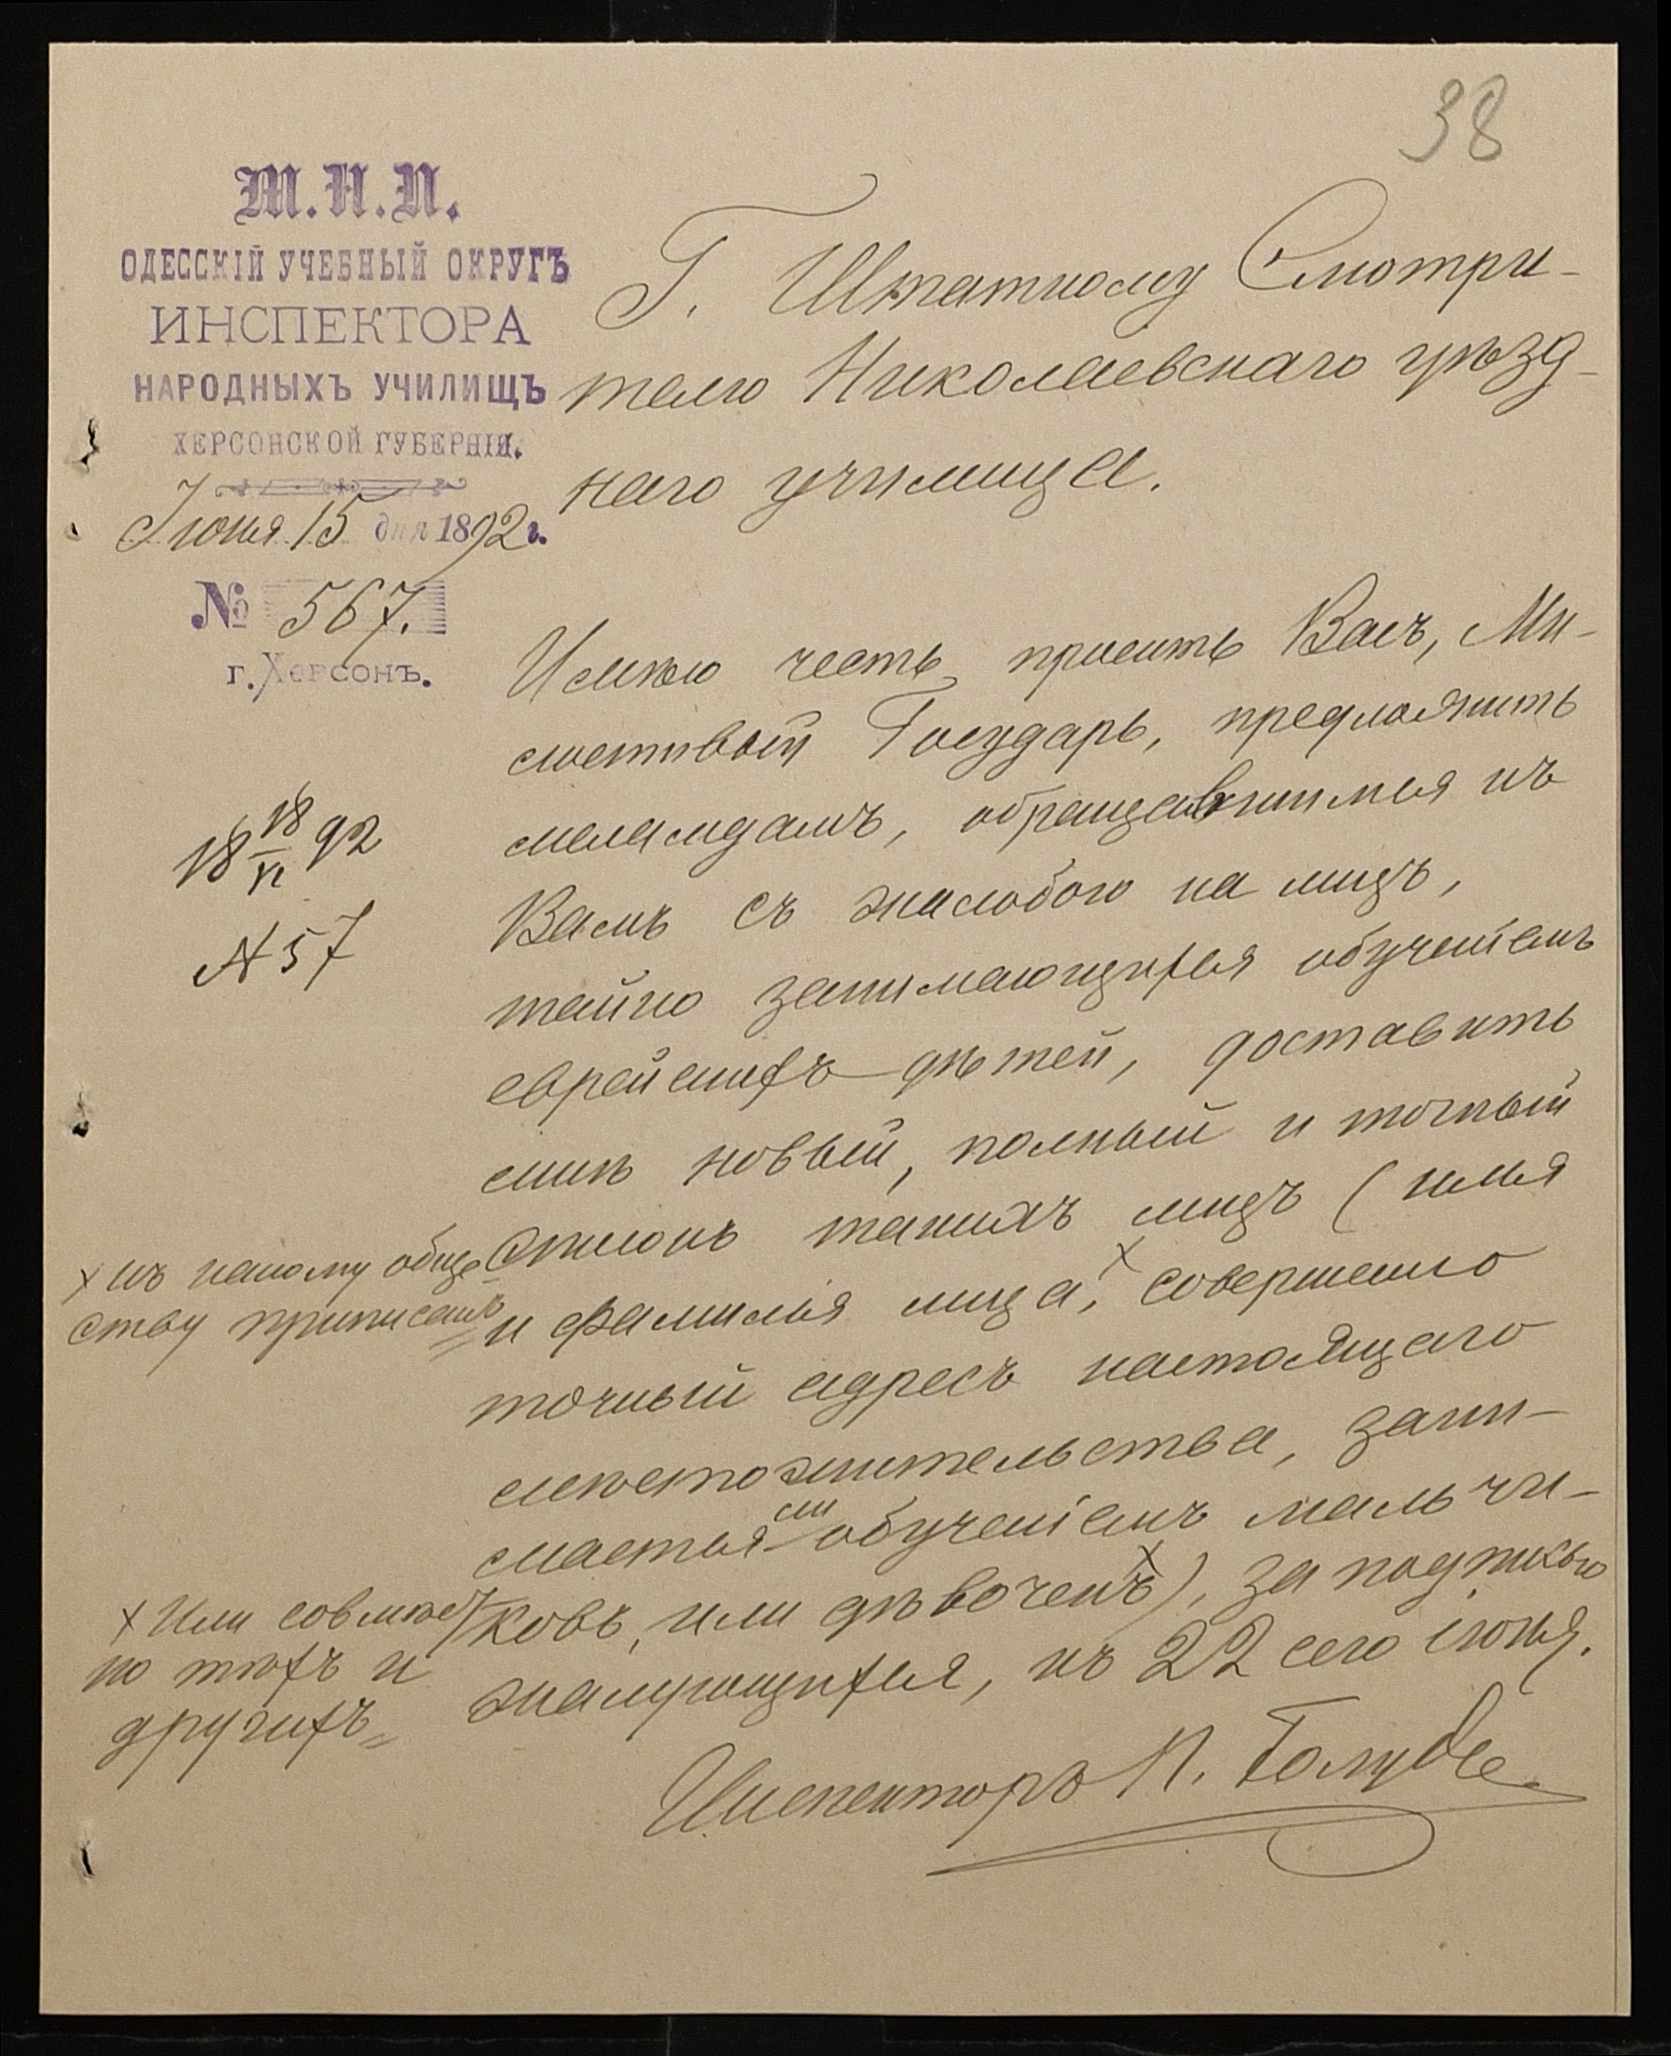 38
М.Н.П.
ОДЕССКІЙ УЧЕБНЫЙ ОКРУГЪ
ИНСПЕКТОРА
НАРОДНЫХЪ УЧИЛИЩЪ
ХЕРСОНСКОЙ ГУБЕРНІИ.
Іюня 15 дня 1892 г.
№ 567.
г. Херсонъ.
Г. Штатному Смотри-
телю Николаевскаго уѣзд-
наго училища.
18 18/VI 92
№ 57
Имѣю честь просить Васъ, Ми-
лостивый Государь, предложить
меламдамъ, обращавшимся къ
Вамъ съ жалобою на лицъ,
тайно занимающихся обученіемъ
еврейскихъ дѣтей, доставить
мнѣ новый, полный и точный
списокъ такихъ лицъ (имя
и фамилія лица, х совершенно
точный адресъ настоящаго
мѣстожительства, зани-
мается ли обученіемъ мальчи-
ковъ, или дѣвочекъ х), за подписью
жалующихся, къ 22 сего іюня.
Инспекторъ П. Голубе
х къ какому обще-
ству приписанъ
х или совмѣст-
но тѣхъ и
другихъ